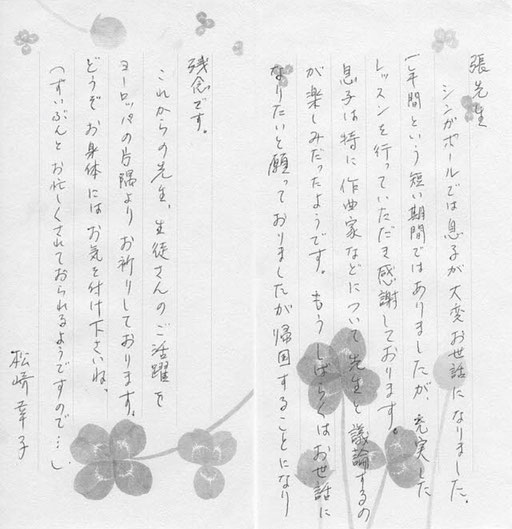 張先生
シンガポールでは息子が大変お世話になりました。
1年間という短い期間ではありましたが、充実した
レッスンを行っていただき感謝しております。
息子は特に作曲家などについて先生と議論するの
が楽しみだったようです。もうしばらくはお世話に
なりたいと願っておりましたが帰国することになり
残念です。
これからの先生、生徒さんのご活躍を
ヨーロッパの片隅よりお祈りしております。
どうぞお身体にはお気を付け下さいね。
（ずいぶんとお忙しくされておられるようですので…）
松崎幸子